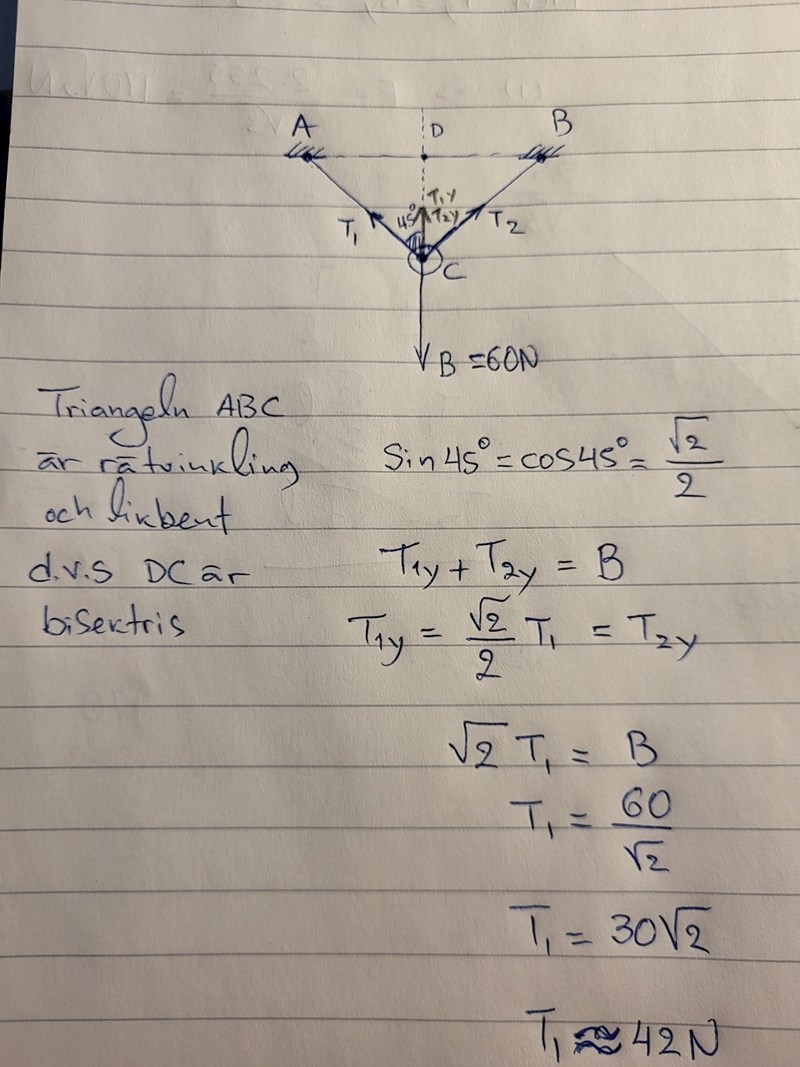 A D B
T₁y
45° T₂y
T₁ T₂
C
B = 60N
Triangeln ABC
är rätvinkling
och likbent
d.v.s DC är
bisektris
Sin 45° = cos45° = √2/2
T₁y + T₂y = B
T₁y = √2/2 T₁ = T₂y
√2 T₁ = B
T₁ = 60/√2
T₁ = 30√2
T₁ ≈ 42N